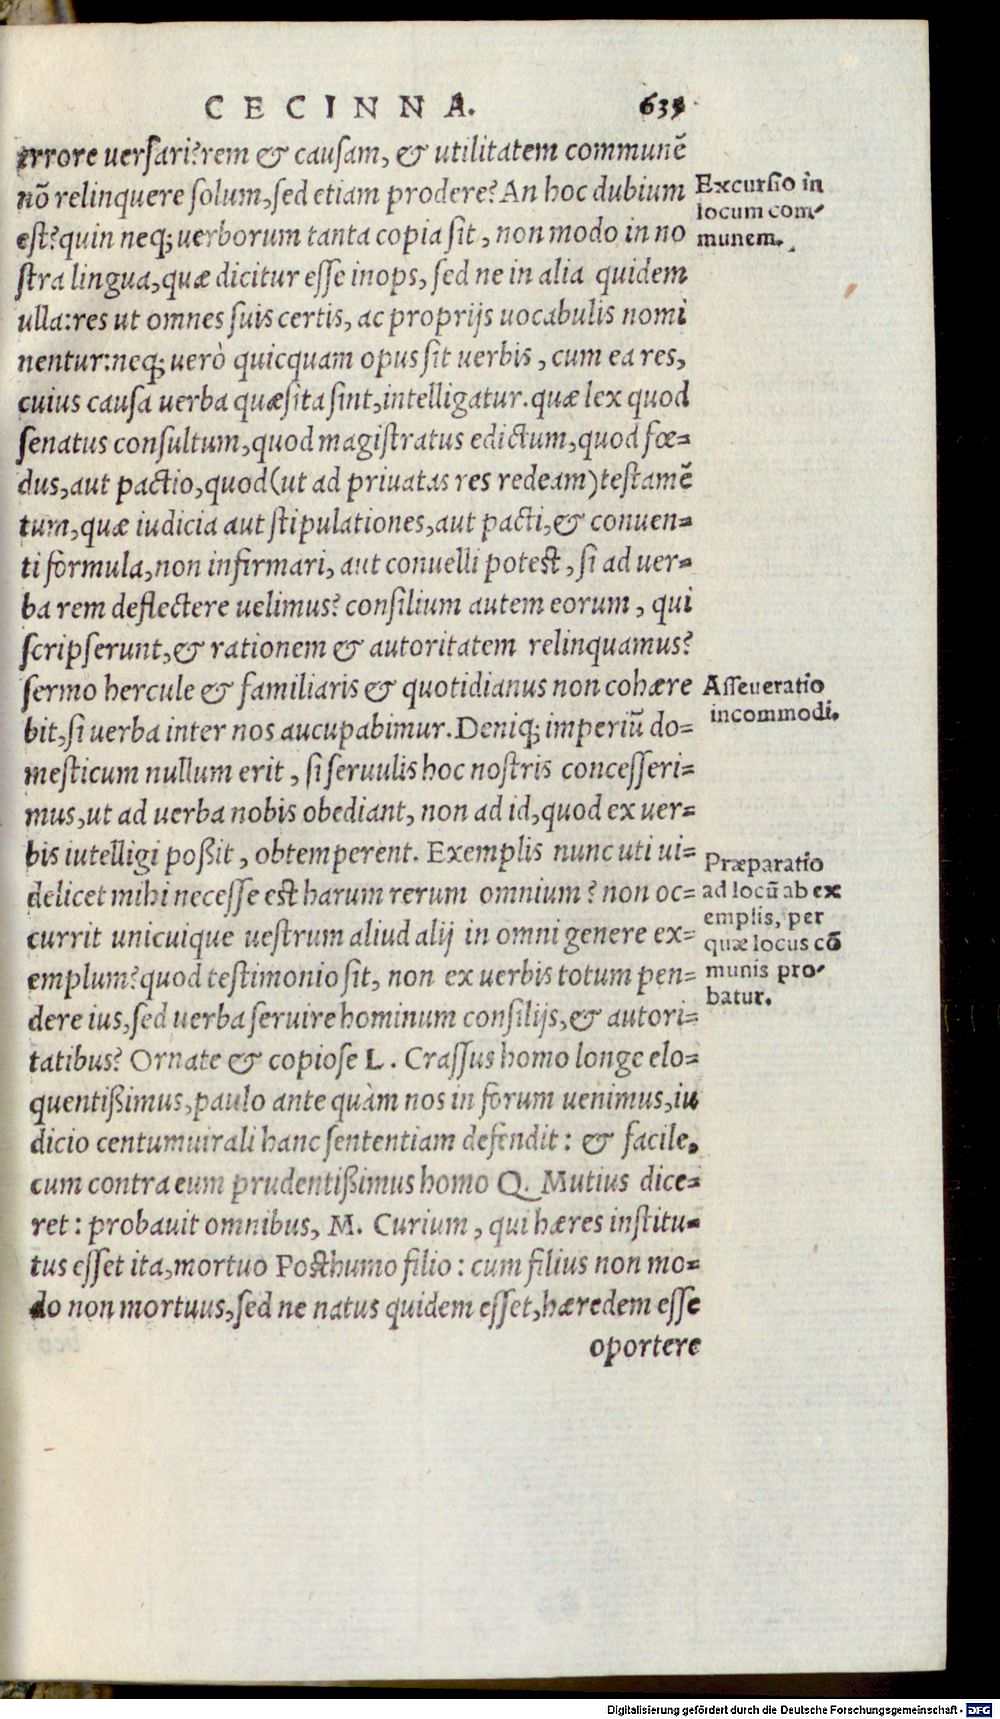 CECINNA. 639
errore uersari? rem & causam, & utilitatem communē
nō relinquere solum, sed etiam prodere? An hoc dubium
est? quin neq; uerborum tanta copia sit, non modo in no
stra lingua, quæ dicitur esse inops, sed ne in alia quidem
ulla: res ut omnes suis certis, ac proprijs uocabulis nomi
nentur: neq; uerò quicquam opus sit uerbis, cum ea res,
cuius causa uerba quæsita sint, intelligatur. quæ lex quod
senatus consultum, quod magistratus edictum, quod fœ=
dus, aut pactio, quod (ut ad priuatas res redeam) testamē
tum, quæ iudicia aut stipulationes, aut pacti, & conuen=
ti formula, non infirmari, aut conuelli potest, si ad uer=
ba rem deflectere uelimus? consilium autem eorum, qui
scripserunt, & rationem & autoritatem relinquamus?
sermo hercule & familiaris & quotidianus non cohære
bit, si uerba inter nos aucupabimur. Deniq; imperiū do=
mesticum nullum erit, si seruulis hoc nostris concesseri=
mus, ut ad uerba nobis obediant, non ad id, quod ex uer=
bis iutelligi poßit, obtemperent. Exemplis nunc uti ui=
delicet mihi necesse est harum rerum omnium? non oc=
currit unicuique uestrum aliud alij in omni genere ex=
emplum? quod testimonio sit, non ex uerbis totum pen=
dere ius, sed uerba seruire hominum consilijs, & autori=
tatibus? Ornate & copiose L. Crassus homo longe elo=
quentißimus, paulo ante quàm nos in forum uenimus, iu
dicio centumuirali hanc sententiam defendit: & facile,
cum contra eum prudentißimus homo Q. Mutius dice=
ret: probauit omnibus, M. Curium, qui hæres institu=
tus esset ita, mortuo Posthumo filio: cum filius non mo=
do non mortuus, sed ne natus quidem esset, hæredem esse
oportere
Excursio in
locum com-
munem.
Asseueratio
incommodi.
Præparatio
ad locū ab ex
emplis, per
quæ locus cō
munis pro-
batur.
Digitalisierung gefördert durch die Deutsche Forschungsgemeinschaft - DFG